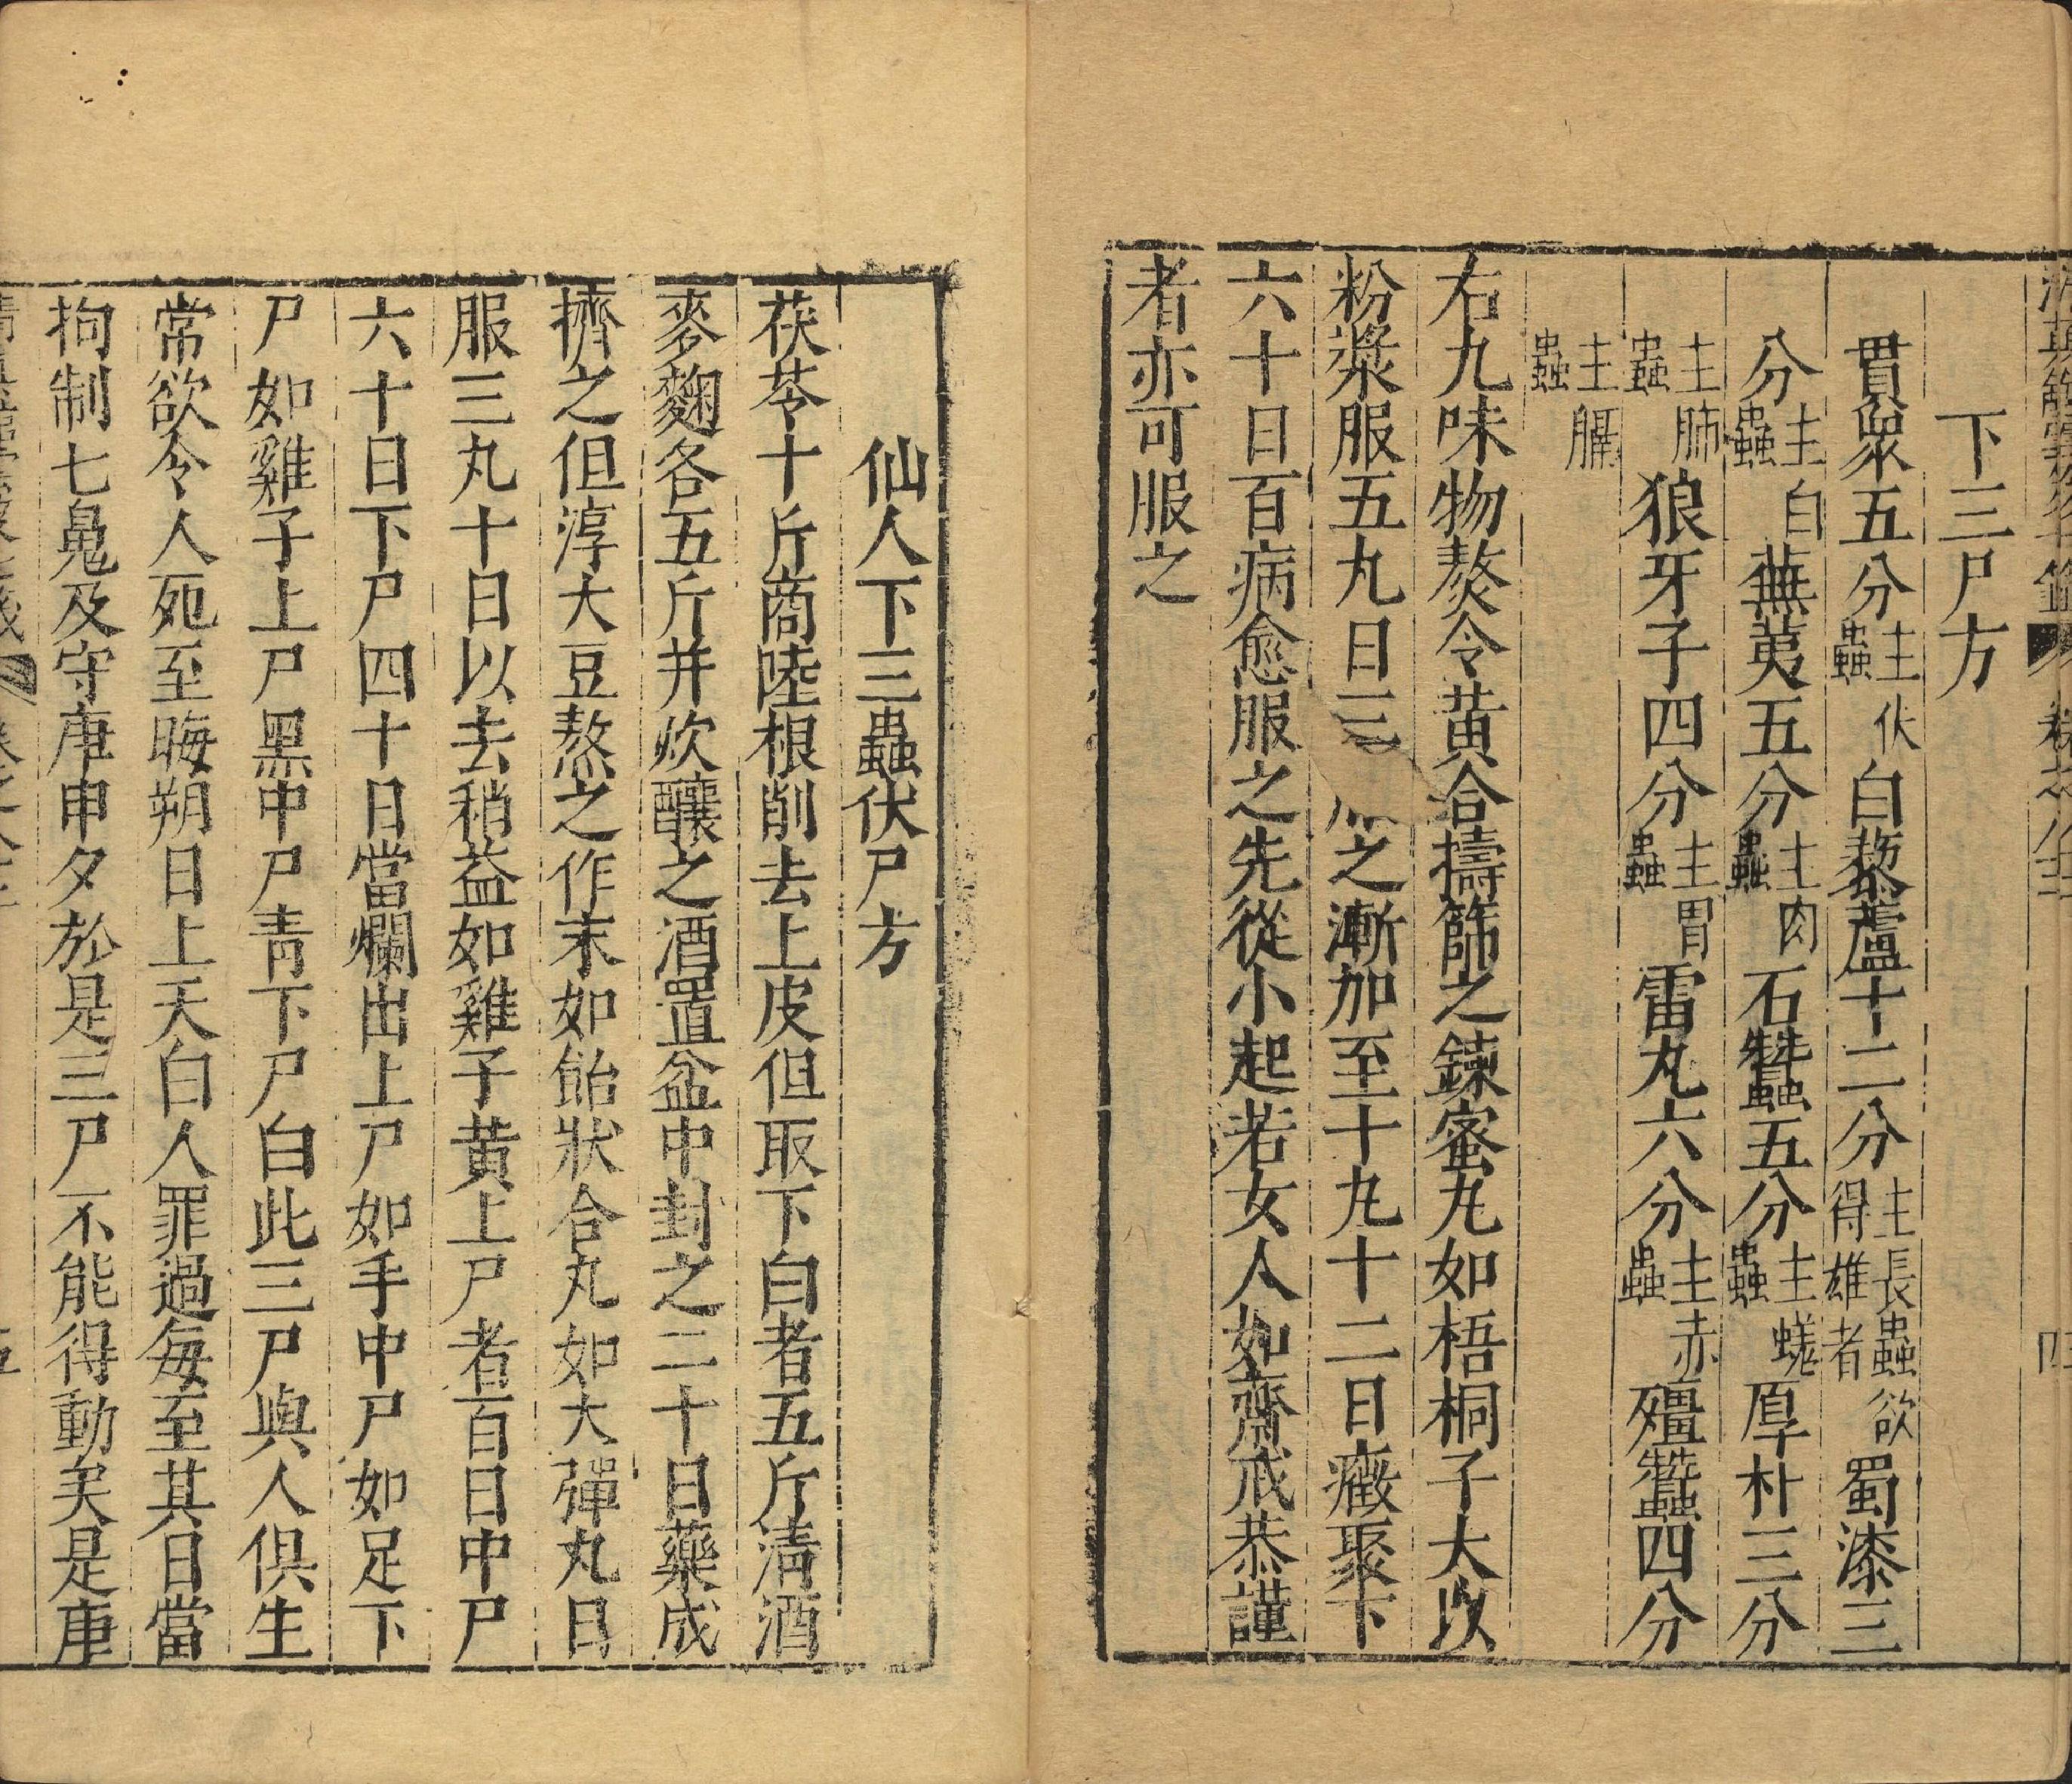 下三尸方
貫衆五分主伏蟲白藜蘆十二分主長蟲欲得雄者蜀漆三
分主白蟲蕪荑五分主肉蟲石蠶五分主蟯蟲厚朴三分
主肺蟲狼牙子四分主胃蟲雷丸六分主赤蟲殭蠶四分
主膈蟲
右九味物熬令黄合擣篩之鍊蜜丸如梧桐子大以
粉漿服五丸日三之漸加至十九十二日癥聚下
六十日百病愈服之先從小起若女人如齋戒恭謹
者亦可服之
仙人下三蟲伏尸方
茯苓十斤商陸根削去上皮但取下白者五斤清酒
麥麴各五斤并炊釀之酒置盆中封之二十日藥成
擠之但淳大豆熬之作末如飴狀合丸如大彈丸日
服三丸十日以去稍益如雞子黄上尸者百日中尸
六十日下尸四十日當爛出上尸如手中尸如足下
尸如雞子上尸黑中尸青下尸白此三尸與人俱生
常欲令人死至晦朔日上天白人罪過每至其日當
拘制七鬼及守庚申夕於是三尸不能得動矣是庚